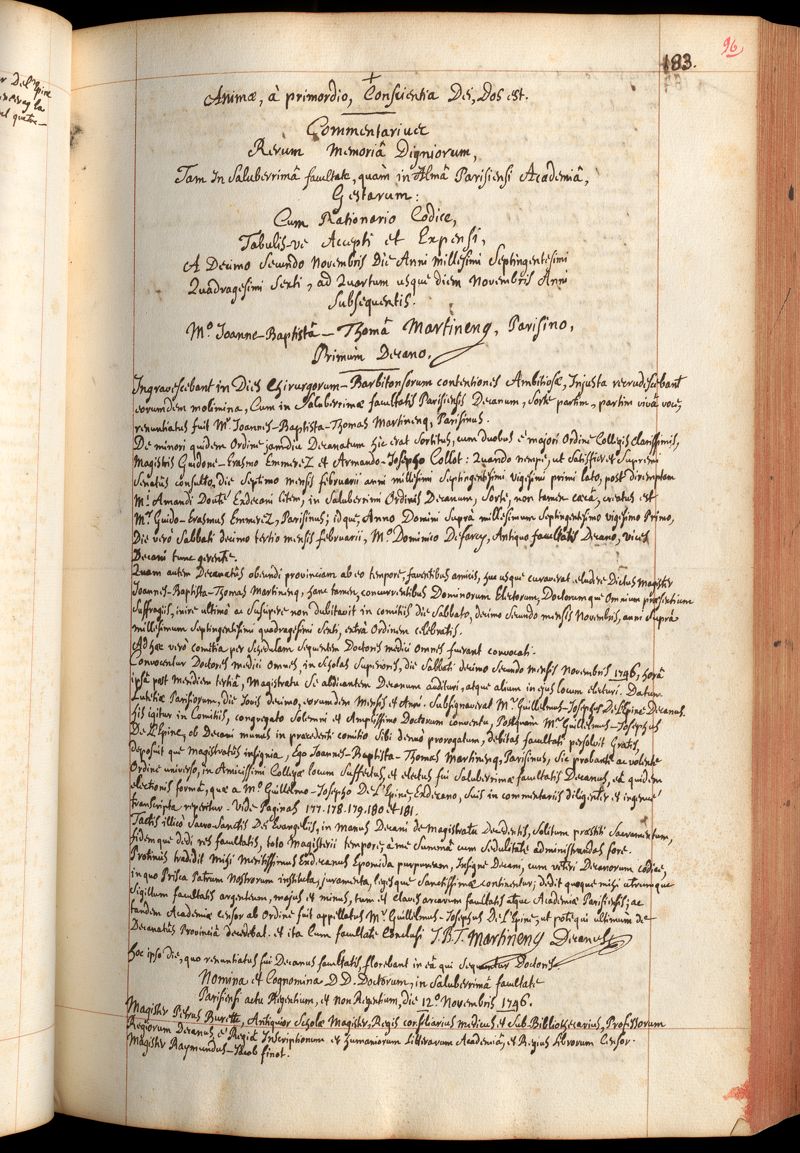 96
183.
r De L'Epine
la
el quatre_
+
Animæ, à primordio, Conscientia Dei, Dos est.
Commentarius
Rerum Memoriâ Digniorum,
Tam in Saluberrimâ facultate, quàm in Almâ Parisiensi Academiâ,
Gestarum:
Cum Rationario Codice,
Tabulis-ve Accepti et Expensi,
A Decimo Secundo Novembris Die Anni Millesimi Septingentesimi
Quadragesimi Sexti, ad Quartum usque diem Novembris Anni
Subsequentis.
Mº. Joanne-Baptistâ_Thomâ Martineng, Parisino,
Primùm Decano.
Ingravescebant in Dies Chirurgorum-Barbitonsorum contentiones Ambitiosæ, Injusta recrudescebant
eorumdem molimina, Cum in Saluberrimæ facultatis Parisiensis Decanum, Sorte partim, partim vivâ voce,
renuntiatus fuit Mr. Joannes-Baptista-Thomas Martinenq, Parisinus.
De minori quidem Ordine jamdiu Decanatum hic erat Sortitus, cum duobus è majori Ordine Collegis clarissimis,
Magistris Guidone-Erasmo Emmerez et Armando-Josepho Collot: Quando nempè, ut Satisfieret Supremi
Senatûs consulto, die Septimo mensis februarii anni millesimi Septingentesimi vigesimi primi lato, post diremptam
Mi. Amandi Douté Exdecani litem, in Saluberrimi Ordinis Decanum, Sorte, non tamen cæcâ, creatus est
Mr. Guido-Erasmus Emmerez, Parisinus; idque, Anno Domini Suprà millesimum Septingentesimo vigesimo Primo,
Die verò Sabbati decimo tertio mensis februarii, Mº. Dominico De farcy, Antiquo facultatis Decano, vices
Decani tunc gerente.
Quam autem Decanatûs obeundi provinciam ab eo tempore, faventibus amicis, huc usque curaverat eludere Dictus Magister
Joannes-Baptista-Thomas Martinenq, hanc tamen, concurrentibus Dominorum Electorum, Doctorumque Omnium præsentium
Suffragiis, inire ultimò ac Suscipere non dubitavit in comitiis die Sabbato, decimo Secundo mensis Novembris, anni Suprà
millesimum Septingentesimi quadragesimi Sexti, extrà Ordinem celebratis.
Ad hæc verò comitia per Schedulam Sequentem Doctores medici Omnes fuerant convocati.
Convocentur Doctores medici Omnes, in Scholas Superiores, die Sabbati decimo Secundo mensis Novembris 1746, horâ
ipsâ post meridiem tertiâ, Magistratu Se abdicantem Decanum audituri, atque alium in ejus locum electuri. Datum
Lutetiæ Parisiorum, die Jovis decimo, eorumdem Mensis et Anni. Subsignaverat Mr. Guillelmus-Josephus De L'Epine Decanus.
His igitur in Comitiis, congregato Solemni et Amplissimo Doctorum conventu, Postquàm Mr. Guillelmus-Josephus
De L'Epine, ob Decani munus in præcedenti comitio Sibi denuò prorogatum, debitas facultati persolvit Grates,
deposuit que magistratûs insignia, Ego Joannes-Baptista-Thomas Martinenq, Parisinus, Sic probante ac volente
Ordine universo, in Amicissimi Collegæ locum Suffectus, et electus fui Saluberrimæ facultatis Decanus, eâ quidem
electionis formâ, quæ a Mº. Guillelmo-Josepho De L'Epine, Exdecano, Suis in commentariis diligenter et ingenuè
transcripta reperitur. Vide Paginas 177. 178. 179. 180 et 181.
Tactis illicò Sacro-Sanctis Dei Evangeliis, in Manus Decani de Magistratu Decedentis, Solitum præstiti Sacramentum,
fidemque dedi res facultatis, toto Magisterii tempore, à me Summâ cum Sedulitate administrandas fore.
Protinùs tradidit Mihi Meritissimus Exdecanus Epomida purpuream, Insigne Decani, cum veteri Decanorum codice,
in quo Prisca Patrum Nostrorum instituta, juramenta, legesque Sanctissimæ continentur; dedit quoque mihi utrumque
Sigillum facultatis argenteum, majus et minus, tum et claves arcarum facultatis atque Academiæ Parisiensis; ac
tandem Academiæ Censor ab Ordine fuit appellatus Mr. Guillelmus-Josephus De L'Epine, ut potè qui ultimùm de
Decanatûs Provinciâ decedebat. et ita Cum facultate Conclusi J.B.T. Martinenq Decanus
Hoc ipso die, quo renuntiatus fui Decanus facultatis, florebant in eâ qui Sequuntur Doctores
Nomina et Cognomina D.D. Doctorum, in Saluberrimâ facultate
Parisiensi actu Regentium, et non Regentum, die 12º. Novembris 1746.
Magister Petrus Burette, Antiquior Scholæ Magister, Regis consiliarius medicus et Sub-Bibliothecarius, Professorum
Regiorum Decanus, è Regiâ Inscriptionum et humaniorum Litterarum Academiâ, et Regius Librorum Censor.
Magister Raymundus-Jacob finot.